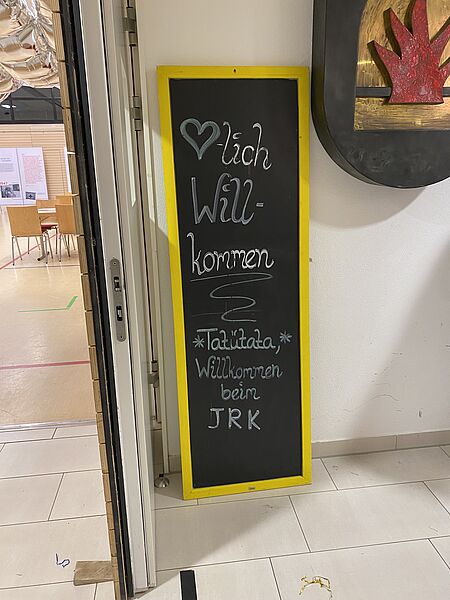 ♡-lich
Will-
kommen
*Tatütata,*
Willkommen
beim
JRK